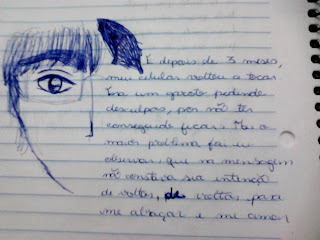 E depois de 3 meses,
meu celular voltou a tocar
Era um garoto pedindo
desculpas, por não ter
conseguido ficar. Mas o
maior problema foi eu
observar, que na mensagem
não constava sua intenção
de voltar, de voltar para
me abraçar e me amar